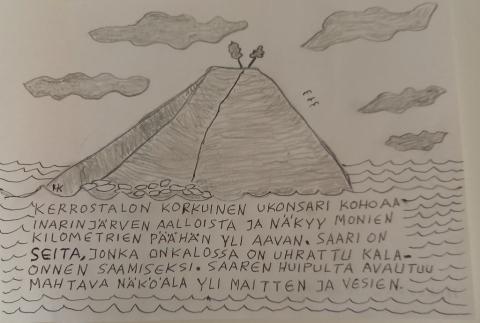 HK
KERROSTALON KORKUINEN UKONSARI KOHOAA
INARINJÄRVEN AALLOISTA JA NÄKYY MONIEN
KILOMETRIEN PÄÄHÄN YLI AAVAN. SAARI ON
SEITA, JONKA ONKALOSSA ON UHRATTU KALA-
ONNEN SAAMISEKSI. SAAREN HUIPULTA AVAUTUU
MAHTAVA NÄKÖALA YLI MAITTEN JA VESIEN.